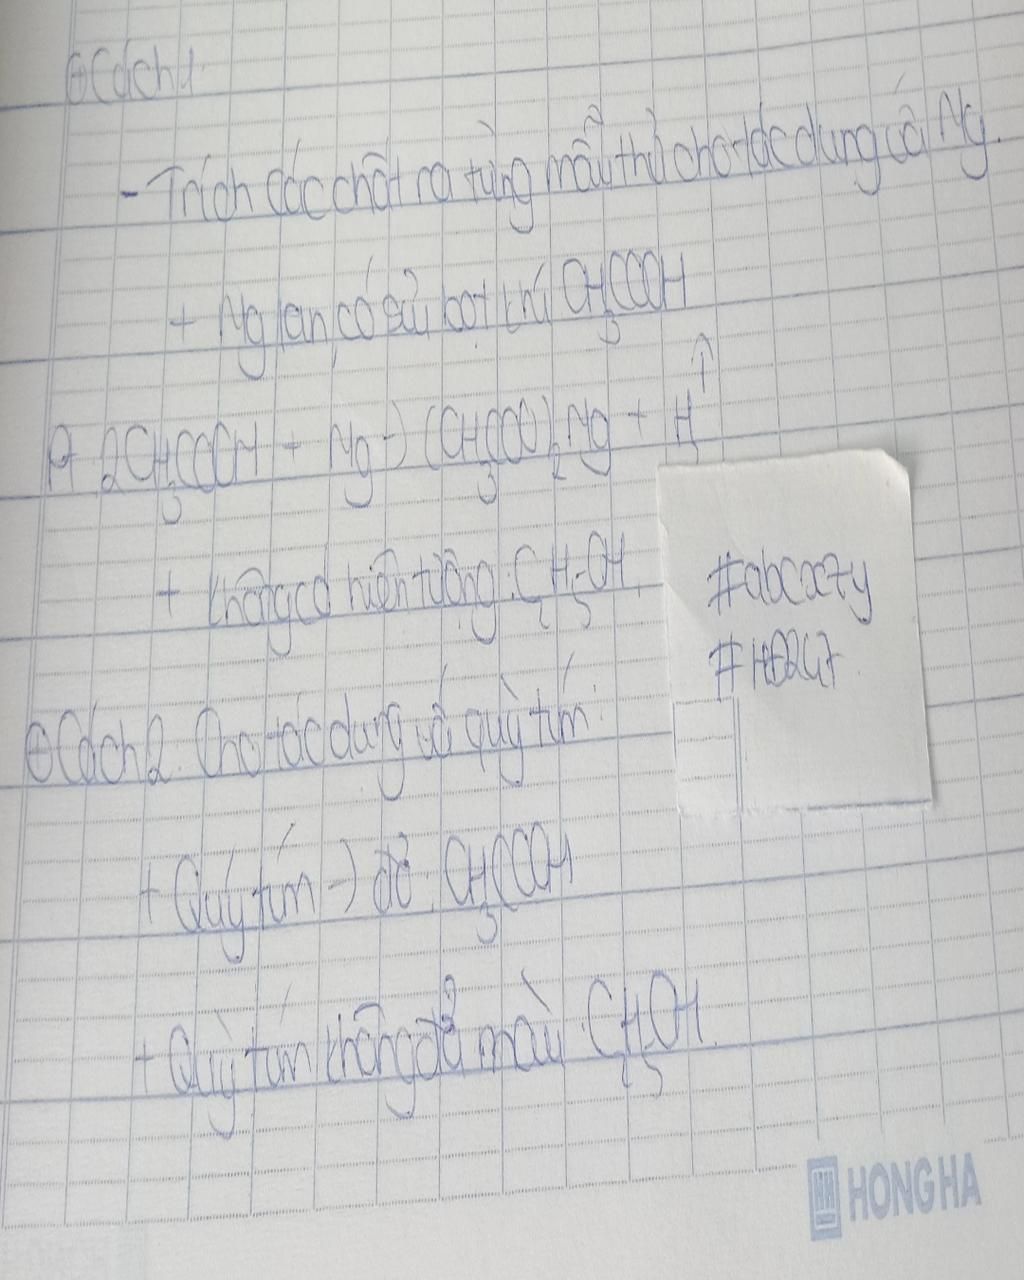 ⊕Cách 1
- Trích các chất ra từng mẫu thử cho tác dụng với Mg.
+ Mg tan, có sủi bọt khí CH₃COOH
Pt 2CH₃COOH + Mg → (CH₃COO)₂Mg + H₂↑
+ Không có hiện tượng: C₂H₅OH
⊕Cách 2. Cho tác dụng với quỳ tím:
+ Quỳ tím → đỏ: CH₃COOH
+ Quỳ tím không đổi màu: C₂H₅OH.
#abcxzy
#HĐ247
HONG HA